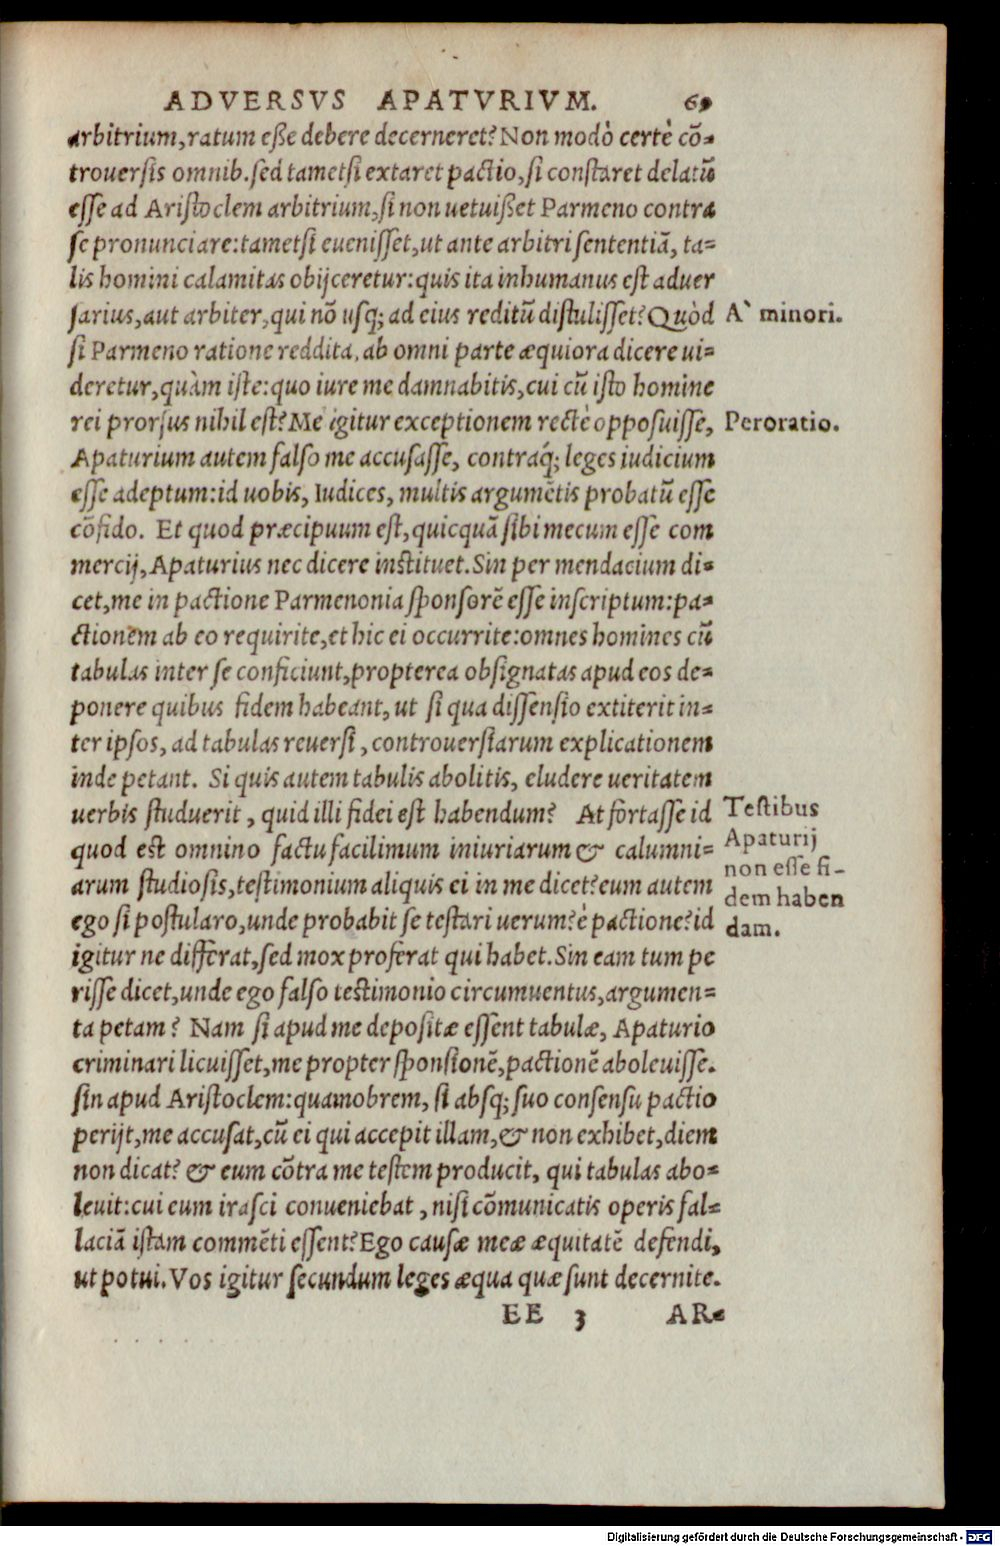 ADVERSVS APATVRIVM. 69
arbitrium, ratum eße debere decerneret? Non modò certè cō-
trouersis omnib. sed tametsi extaret pactio, si constaret delatū
esse ad Aristoclem arbitrium, si non uetuißet Parmeno contra
se pronunciare: tametsi euenisset, ut ante arbitri sententiā, ta-
lis homini calamitas obijceretur: quis ita inhumanus est aduer
sarius, aut arbiter, qui nō usq; ad eius reditū distulisset? Quòd
A` minori.
si Parmeno ratione reddita, ab omni parte æquiora dicere ui-
deretur, quàm iste: quo iure me damnabitis, cui cū isto homine
rei prorsus nihil est? Me igitur exceptionem rectè opposuisse,
Peroratio.
Apaturium autem falso me accusasse, contraq́; leges iudicium
esse adeptum: id uobis, Iudices, multis argumētis probatū esse
cōfido. Et quod præcipuum est, quicquā sibi mecum esse com
mercij, Apaturius nec dicere instituet. Sin per mendacium di-
cet, me in pactione Parmenonia sponsorē esse inscriptum: pa-
ctionem ab eo requirite, et hic ei occurrite: omnes homines cū
tabulas inter se conficiunt, propterea obsignatas apud eos de-
ponere quibus fidem habeant, ut si qua dissensio extiterit in-
ter ipsos, ad tabulas reuersi, controuersiarum explicationem
inde petant. Si quis autem tabulis abolitis, eludere ueritatem
uerbis studuerit, quid illi fidei est habendum? At fortasse id
quod est omnino factu facilimum iniuriarum & calumni-
arum studiosis, testimonium aliquis ei in me dicet? eum autem
ego si postularo, unde probabit se testari uerum? è pactione? id
Testibus
Apaturij
non esse fi-
dem haben
dam.
igitur ne differat, sed mox proferat qui habet. Sin eam tum pe
risse dicet, unde ego falso testimonio circumuentus, argumen-
ta petam? Nam si apud me depositæ essent tabulæ, Apaturio
criminari licuisset, me propter sponsionē, pactionē aboleuisse.
sin apud Aristoclem: quamobrem, si absq; suo consensu pactio
perijt, me accusat, cū ei qui accepit illam, & non exhibet, diem
non dicat? & eum cōtra me testem producit, qui tabulas abo-
leuit: cui eum irasci conueniebat, nisi cōmunicatis operis fal-
laciā istam commēti essent? Ego causæ meæ æquitatē defendi,
ut potui. Vos igitur secundum leges æqua quæ sunt decernite.
EE 3 AR-
Digitalisierung gefördert durch die Deutsche Forschungsgemeinschaft - DFG